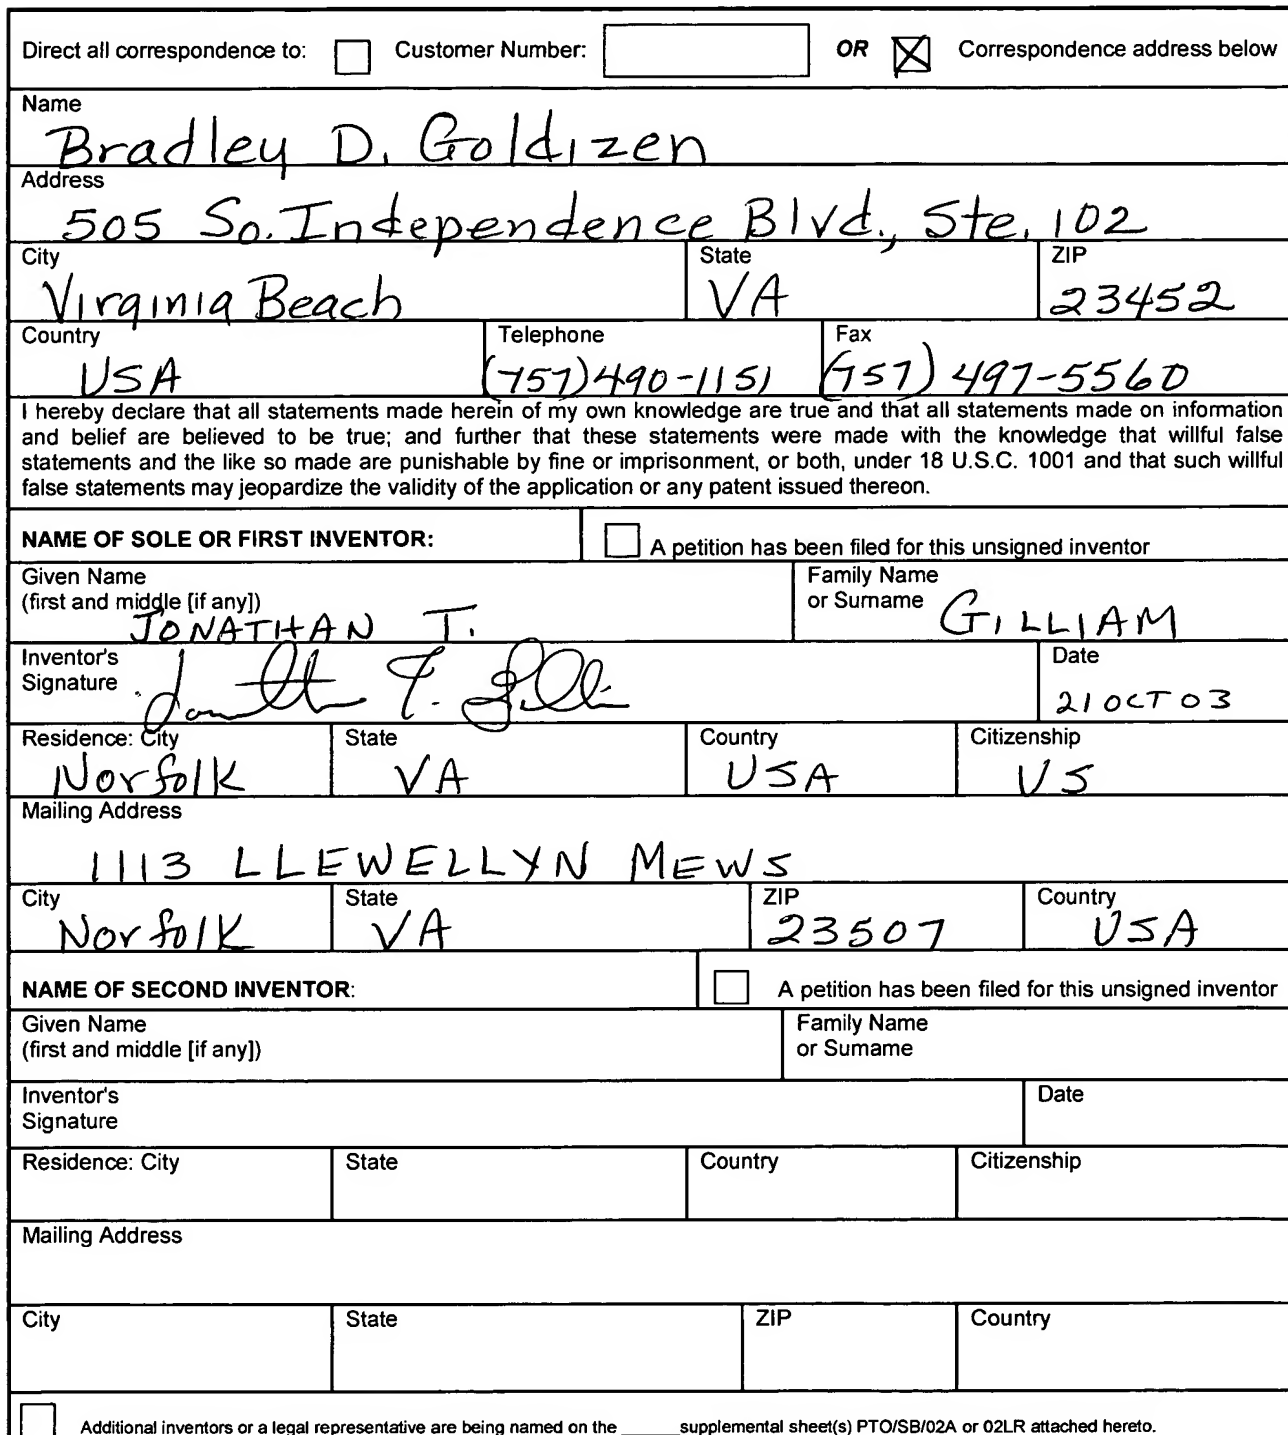 Direct all correspondence to: Customer Number: OR Correspondence address below
Name
Bradley D. Goldizen
Address
505 So. Independence Blvd., Ste. 102
City State ZIP
Virginia Beach VA 23452
Country Telephone Fax
USA (757)490-1151 (757) 497-5560
I hereby declare that all statements made herein of my own knowledge are true and that all statements made on information
and belief are believed to be true; and further that these statements were made with the knowledge that willful false
statements and the like so made are punishable by fine or imprisonment, or both, under 18 U.S.C. 1001 and that such willful
false statements may jeopardize the validity of the application or any patent issued thereon.
NAME OF SOLE OR FIRST INVENTOR: A petition has been filed for this unsigned inventor
Given Name Family Name
(first and middle [if any]) or Surname
JONATHAN T. GILLIAM
Inventor's Date
Signature 21 OCT 03
Residence: City State Country Citizenship
Norfolk VA USA US
Mailing Address
1113 LLEWELLYN MEWS
City State ZIP Country
Norfolk VA 23507 USA
NAME OF SECOND INVENTOR: A petition has been filed for this unsigned inventor
Given Name Family Name
(first and middle [if any]) or Surname
Inventor's Date
Signature
Residence: City State Country Citizenship
Mailing Address
City State ZIP Country
Additional inventors or a legal representative are being named on the _____supplemental sheet(s) PTO/SB/02A or 02LR attached hereto.